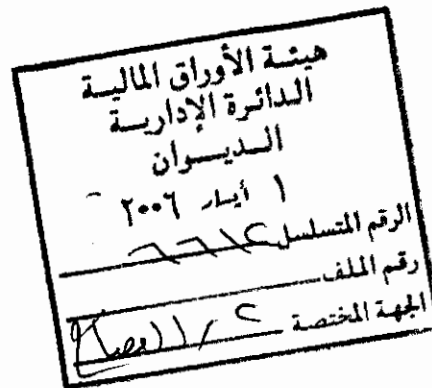 هيئة الأوراق المالية
الدائرة الإدارية
الديوان
١ أيار ٢٠٠٦
الرقم المتسلسل
رقم الملف
الجهة المختصة